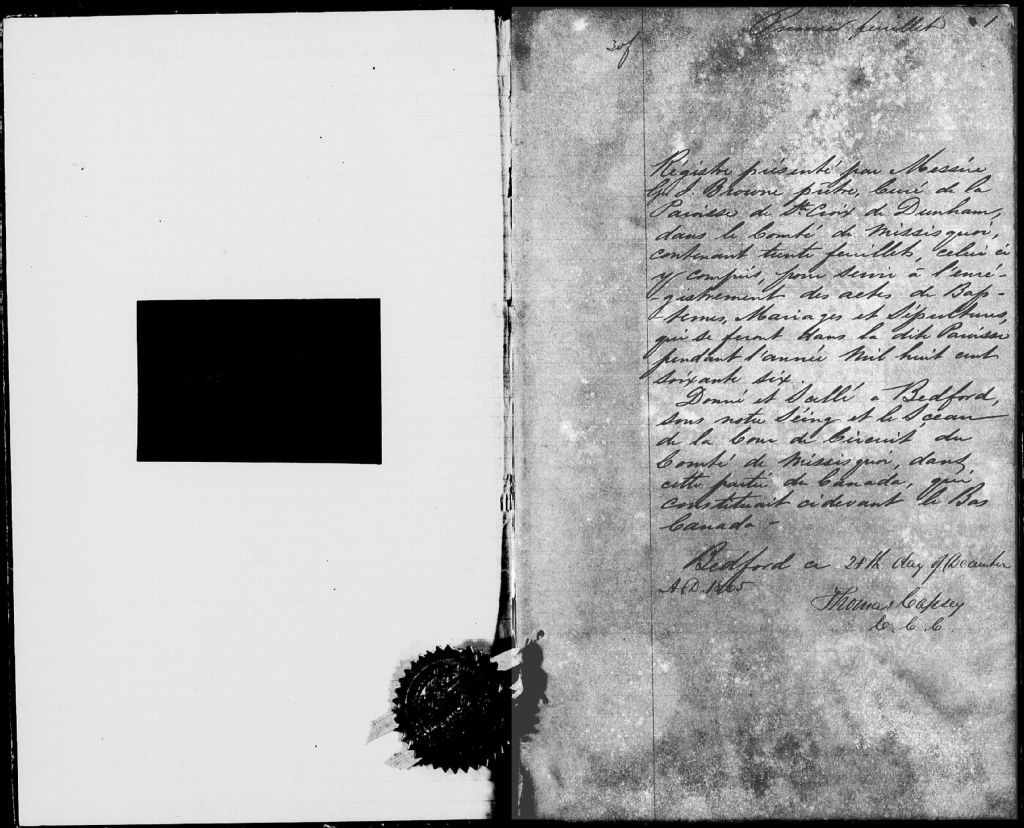 Premier feuillet 1
30f
Régistre présenté par Messire
G. S. Browne prêtre, Curé de la
Paroisse de Ste Croix de Dunham,
dans le Comté de Missisquoi,
contenant trente feuillets, celui ci
y compris, pour servir à l'enré-
-gistrement des actes de Bap-
-temes, Mariages et Sépultures,
qui se feront dans la dite Paroisse
pendant l'année Mil huit cent
soixante six.
Donné et Scellé à Bedford,
sous notre Seing et le Sceau
de la Cour de Circuit du
Comté de Missisquoi, dans
cette partie du Canada, qui
constituait cidevant le Bas
Canada -
Bedford 28th day of December
A.D. 1865
Thomas Capsey
C. C. C.